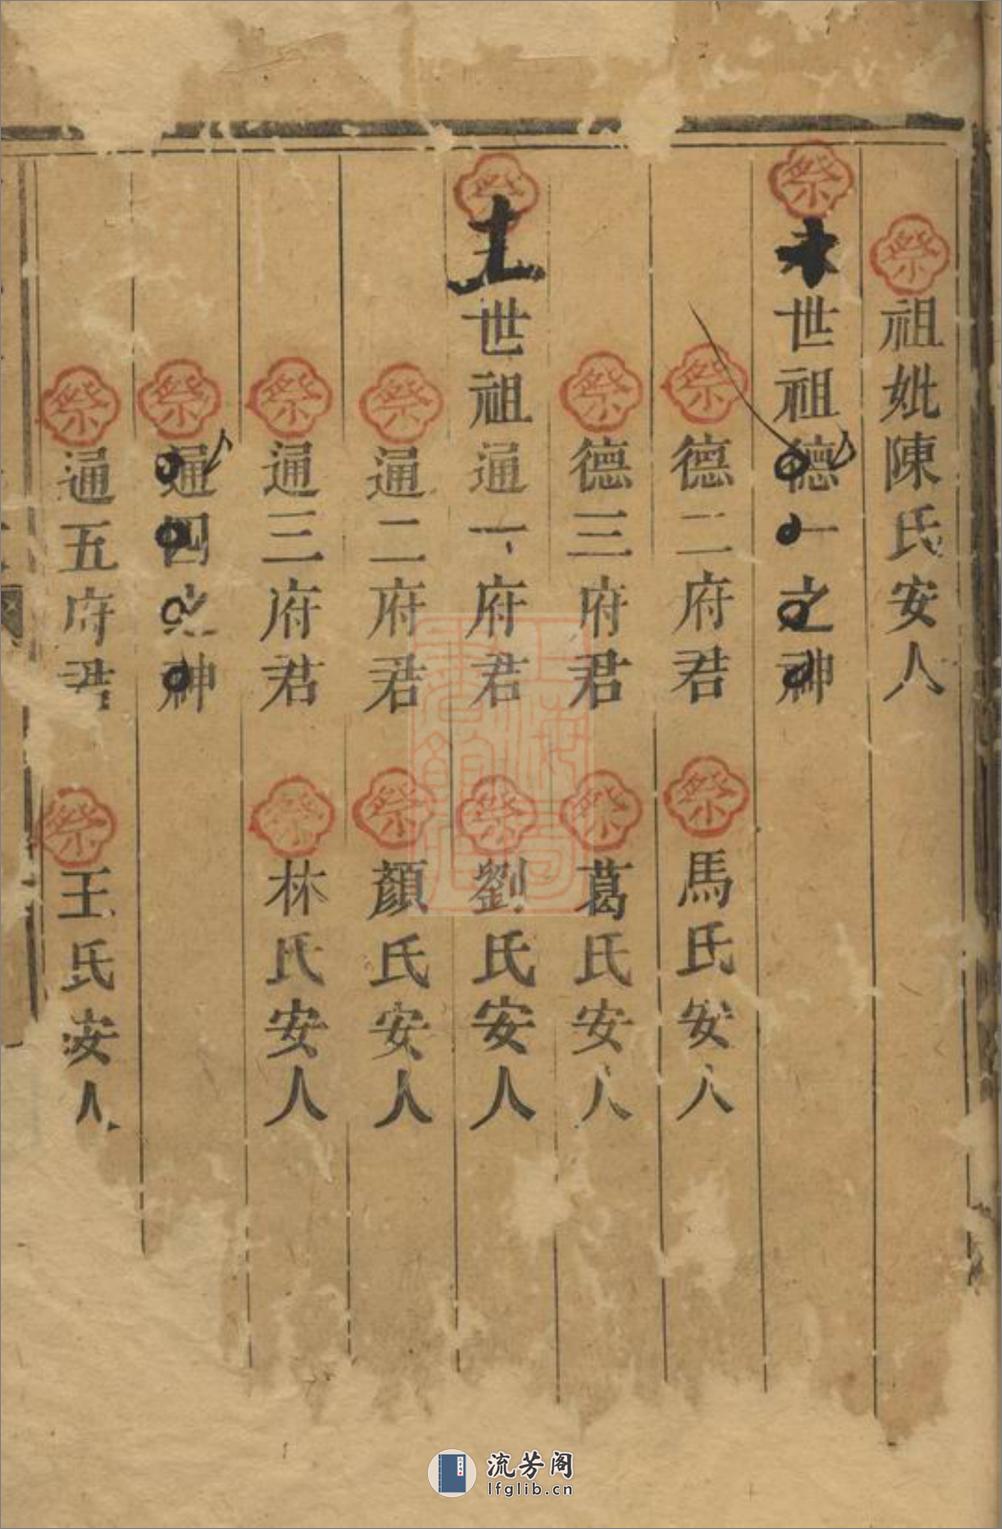 祭 祖妣陳氏安人
祭 世祖德一之神
祭 德二府君 祭 馬氏安人
祭 德三府君 祭 葛氏安人
祭 世祖通一府君 祭 劉氏安人
祭 通二府君 祭 顏氏安人
祭 通三府君 祭 林氏安人
祭 通四之神
祭 通五府君 祭 王氏安人
流芳阁
lfglib.cn